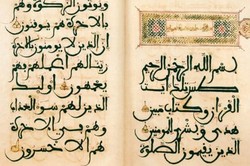 بسم الله الرحمن الرحيم
طس تلك ءايت
القرءان وكتاب مبين
هدى وبشرى للمومنين
الذين يقيمون الصلوة
بالاخرة هم يوقنون
ان الذين لا يومنون
بالاخرة زينا لهم اعمالهم
فهم يعمهون اوليك
الذين لهم سوء العذاب
وهم في الاخرة
هم الاخسرون